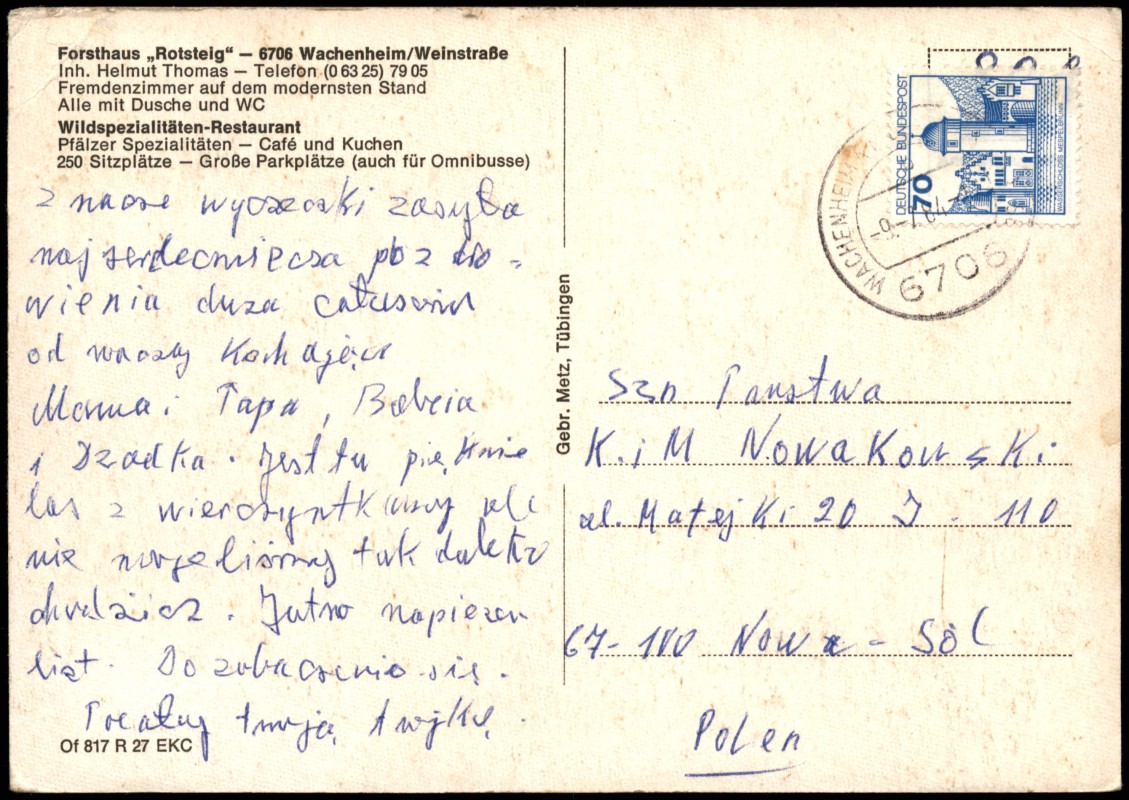 Forsthaus „Rotsteig“ — 6706 Wachenheim/Weinstraße
Inh. Helmut Thomas — Telefon (0 63 25) 79 05
Fremdenzimmer auf dem modernsten Stand
Alle mit Dusche und WC
Wildspezialitäten-Restaurant
Pfälzer Spezialitäten — Café und Kuchen
250 Sitzplätze — Große Parkplätze (auch für Omnibusse)
z wycieczki zasyła
najserdeczniejsza poz dro-
wienia duza całusów
od waszy Kochające
Mama i Papa, Babcia
i Dzadka. Jest tu pięknie
las z ale
nie tak daleko
chodzicz. Jutro napiszem
list. Do zobaczenia się.
twoją
Of 817 R 27 EKC
Gebr. Metz, Tübingen
DEUTSCHE BUNDESPOST
70
WASSERSCHLOSS MESPELBRUNN
WACHENHEIM
-9.-7.84
6706
Szn Państwa
K. i M Nowakowski
al. Matejki 20 J. 110
67-100 Nowa-Sól
Polen